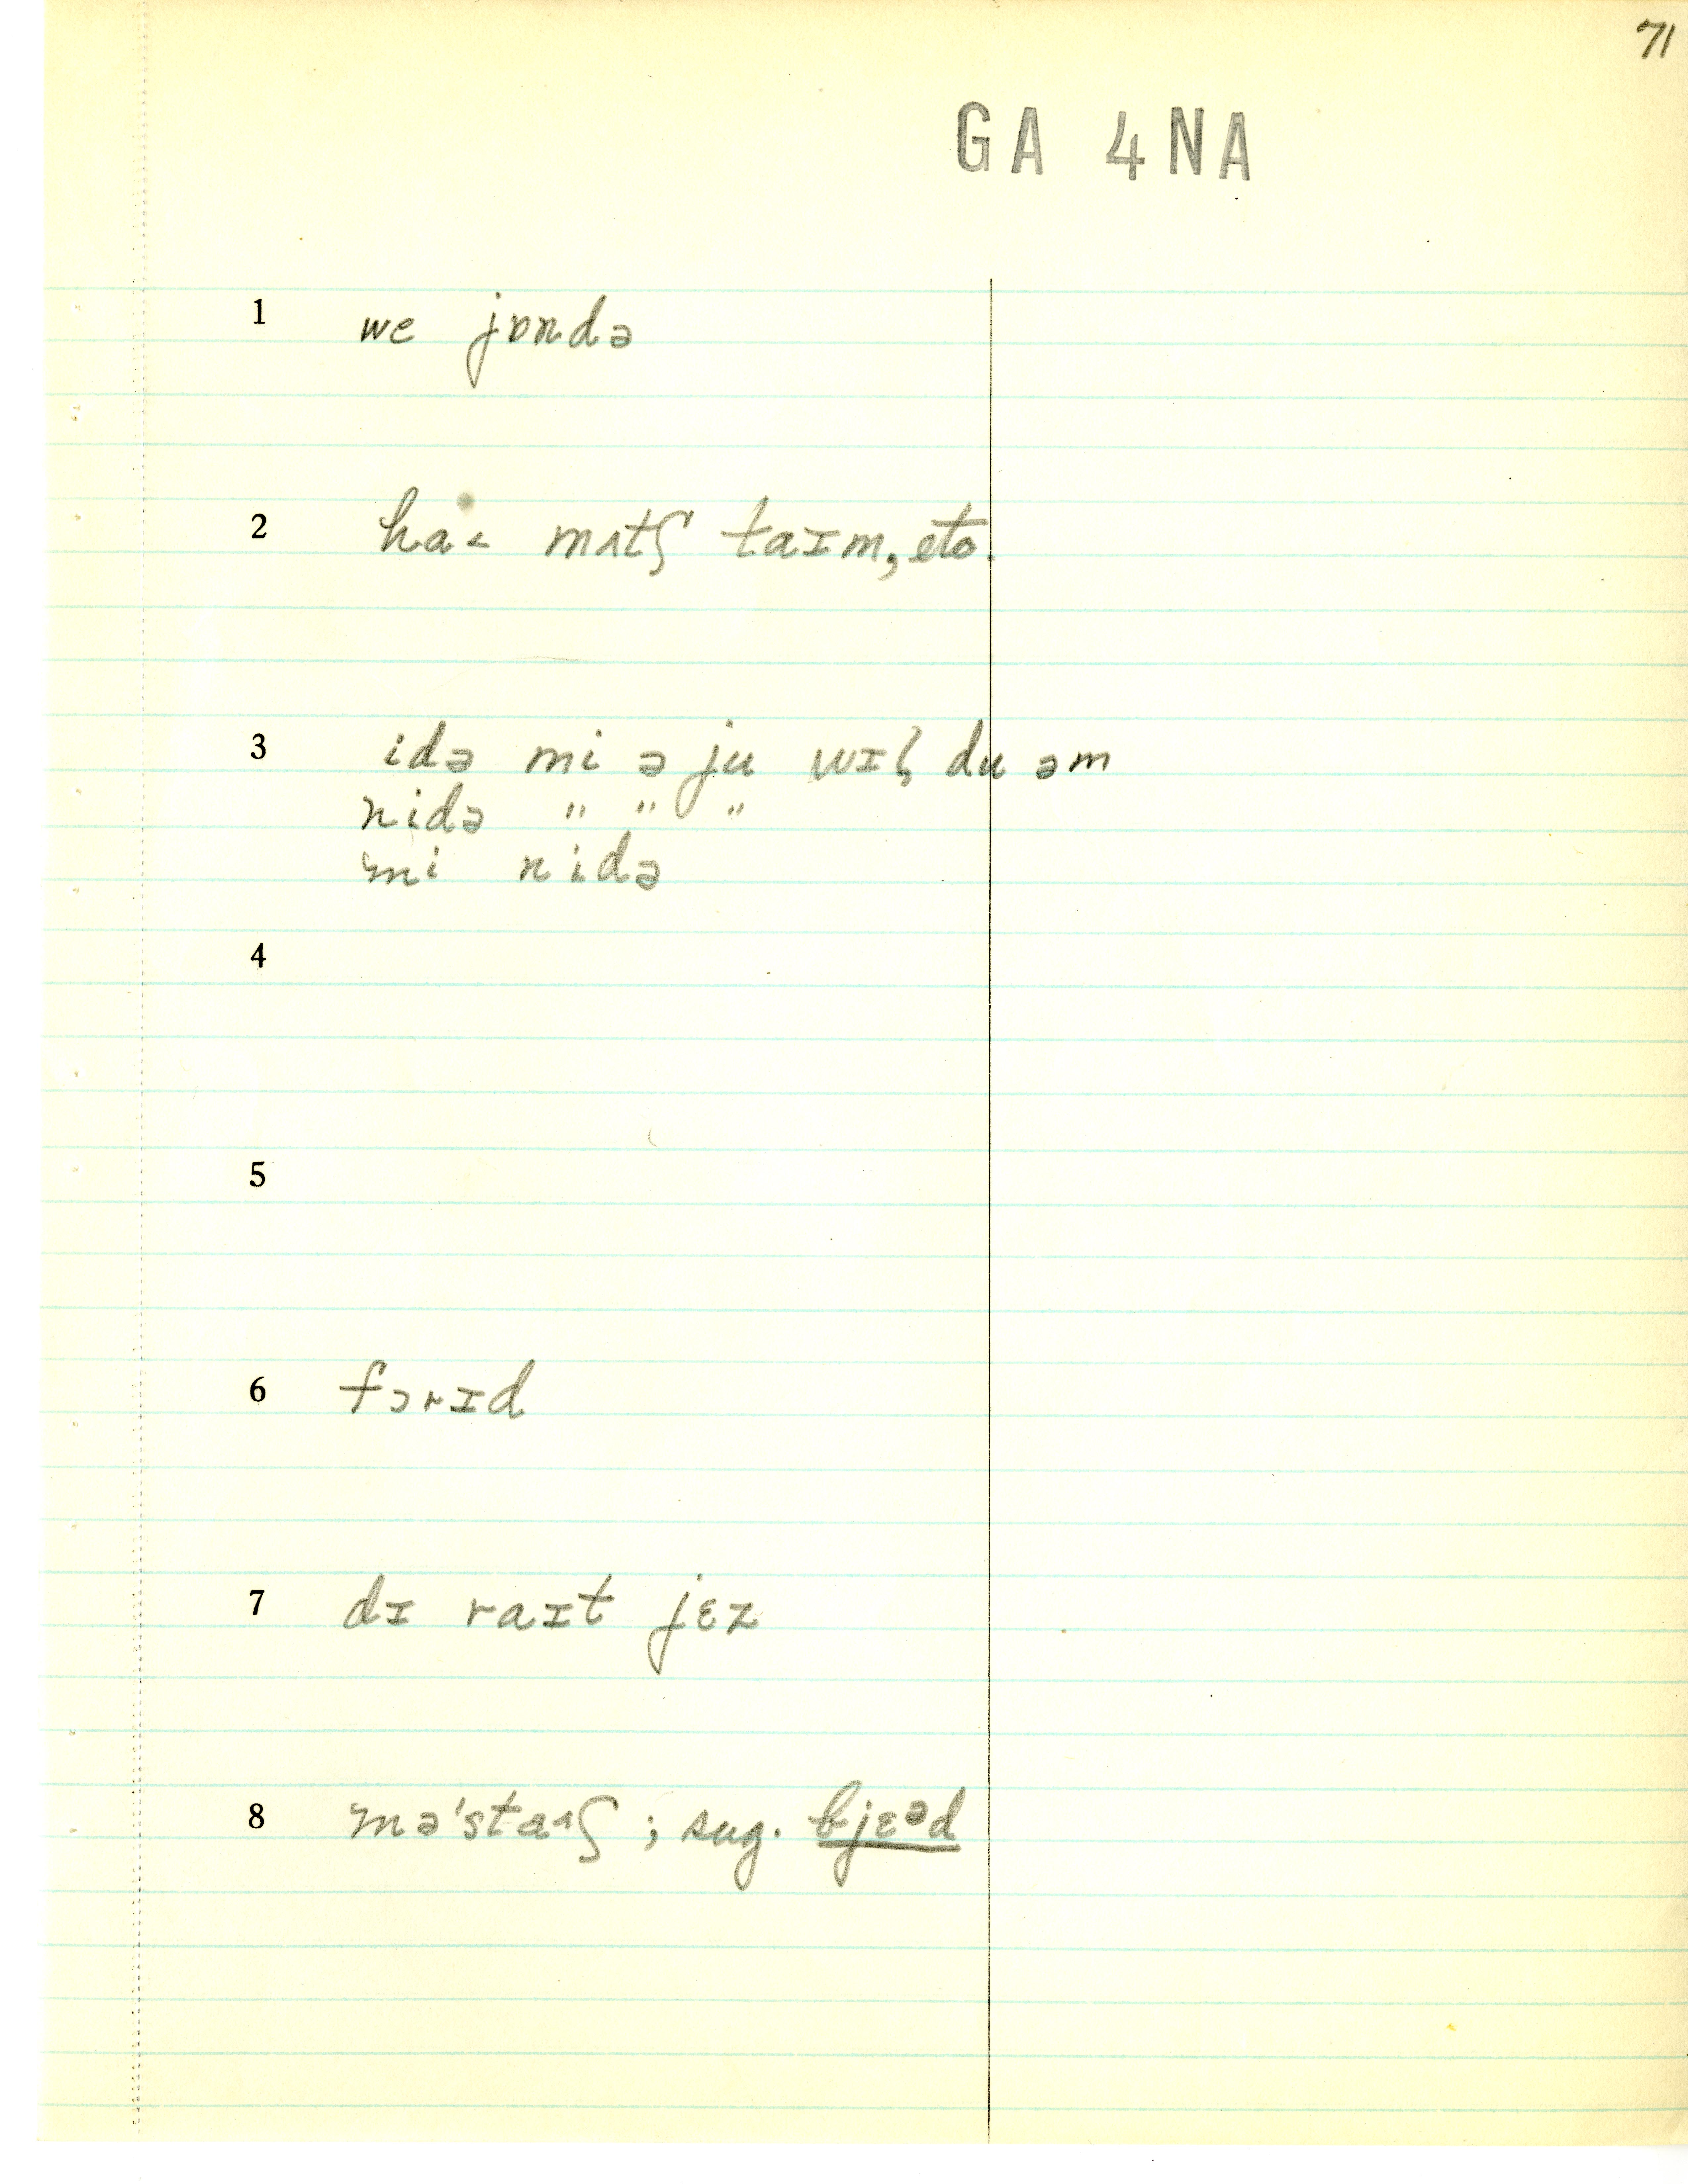 71
GA 4NA
1 we jɒndə
2 ha˂ mʌtʃ taɪm, etc.
3 idə mi ə ju wɪɫ du əm
nidə " " "
mi nidə
4
5
6 fɔrɪd
7 dɪ raɪt jɛz
8 mə'staʃ ; sug. bjɛᵊd